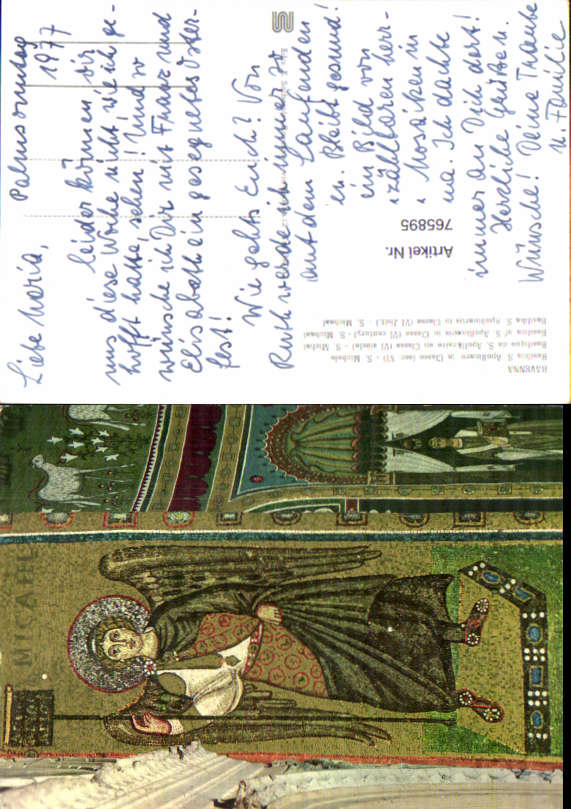 Palmsonntag
1977
Liebe Maria,
leider können wir
uns diese Woche nicht, wie ich ge-
hofft hatte, sehen! Und so
wünsche ich Dir mit Franz und
Elisabeth ein gesegnetes Oster-
fest!
Wie gehts Euch? Von
Ruth werde ich immer so
auf dem Laufenden
en. Bleibt gesund!
ein Bild von
zählbaren herr-
Mosaiken in
na. Ich dachte
immer an Dich dort!
Herzliche Grüße u.
Wünsche! Deine Traute
u. Familie
Artikel Nr.
765895
RAVENNA
Basilica S. Apollinare in Classe (sec. VI) - S. Michele
Basilique de S. Apollinaire en Classe (VI siècle) - S. Michel
Basilica of S. Apollinaris in Classe (VI century) - S. Michael
Basilika S. Apollinaris in Classe (VI Jhdt.) - S. Michael
MICAHEL